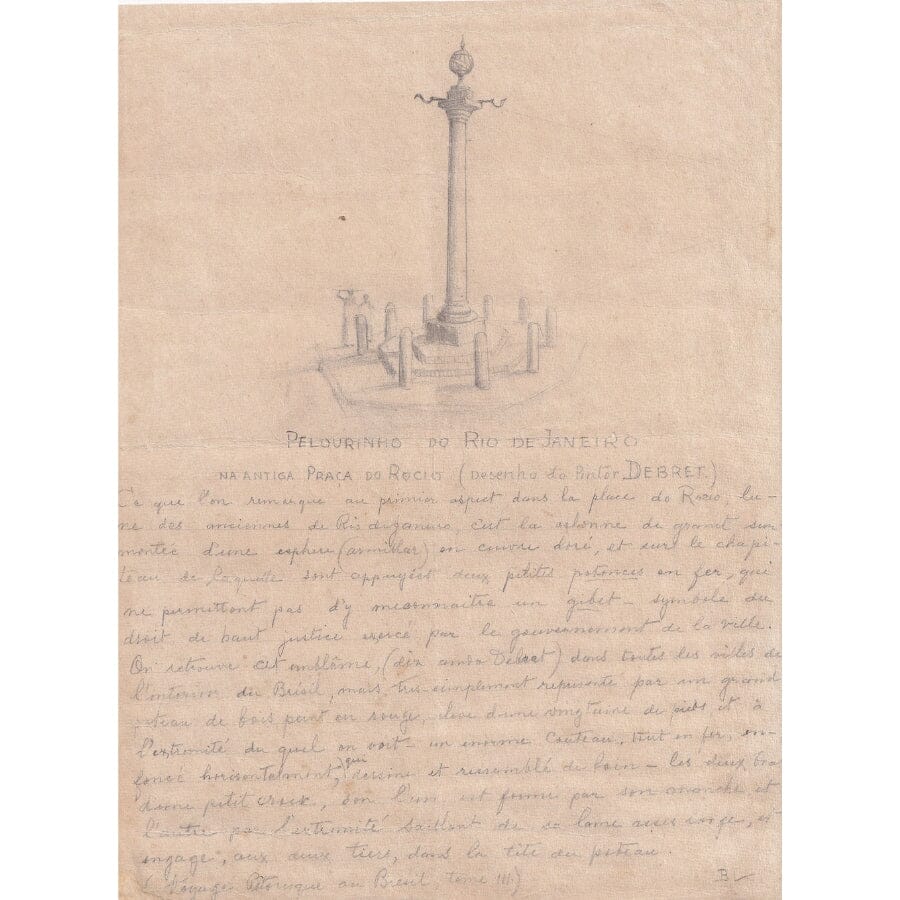 PELOURINHO DO RIO DE JANEIRO
NA ANTIGA PRAÇA DO ROCIO (Desenho do Pintôr DEBRET.)
Ce que l'on remarque au primier aspect dans la place do Rocio, lu-
ne des anciennes de Rio de janeiro, c'est la colonne de granit sur-
montée d'une esphere (armillar) en cuivre doré, et sur le chapi-
teau de laquelle sont appuyées deux petites potences en fer, qui
ne permittont pas d'y meconnaitre un gibet - symbole du
droit de haut justice exercé par le gouvernement de la ville.
On retrouve cet emblême, (diz ainda Debret) dans toutes les villes de
l'interior du Brésil, mais tres-simplement représenté par un grand
poteau de bois peint en rouge, élevé d'une vingtaine de pieds et à
l'extremité du quel on voit - un enorme Couteau, tout en fer, en-
foncé horisontalment, qui dessine et ressemble de loin - les deux bra
d'une petit croix, don l'un est formé par son manche et
l'autre par l'extremité saillant de sa lame
engagé, aux deux tiers, dans la tête du poteau.
(Voyage Pitoresque au Brésil tome III.)
B